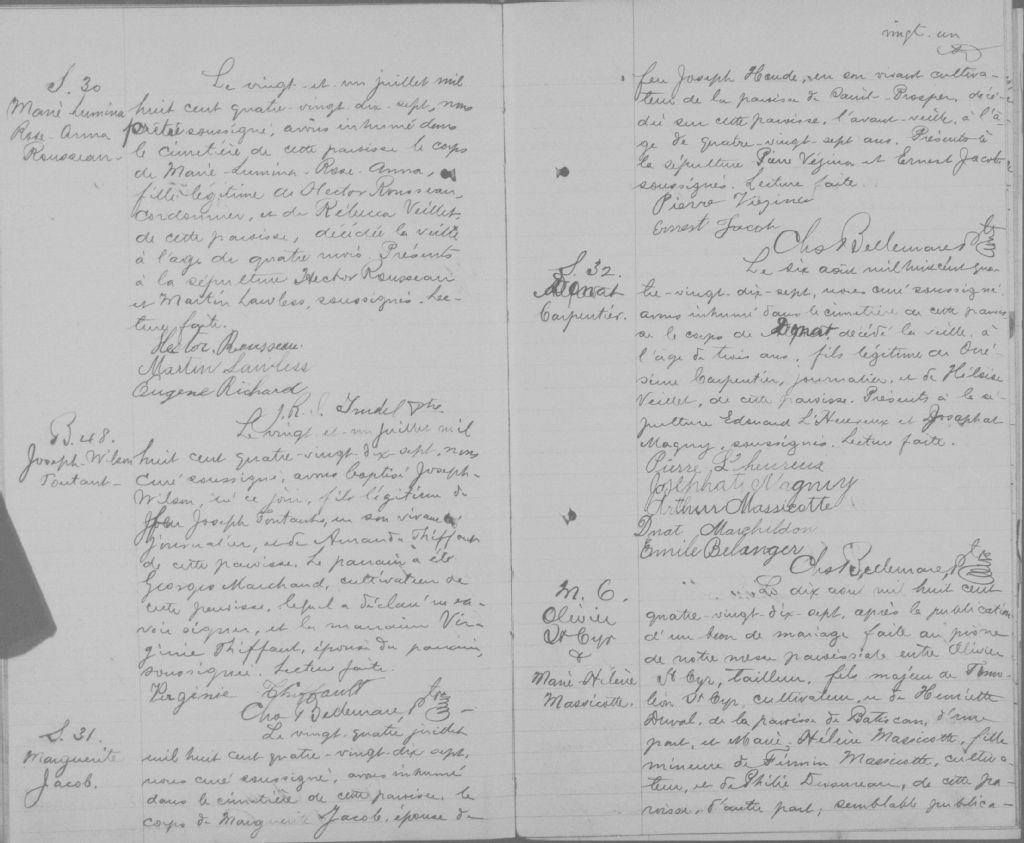 S. 30
Marie Lumina
Rose-Anna
Rousseau-
Le vingt-et-un juillet mil
huit cent quatre-vingt-dix-sept, nous
prêtre soussigné, avons inhumé dans
le cimetière de cette paroisse le corps
de Marie-Lumina-Rose-Anna,
fille légitime de Hector Rousseau,
cordonnier, et de Rébecca Veillet,
de cette paroisse, décédée la veille
à l'age de quatre mois. Présents
à la sépulture Hector Rousseau
et Martin Lawless, soussignés. Lec-
ture faite.
Hector Rousseau
Martin Lawless
Eugene Richard
Trudel ptre
B. 48.
Joseph-Wilson
Tontant-
Le vingt-et-un juillet mil
huit cent quatre-vingt-dix-sept, nous
curé soussigné, avons baptisé Joseph-
Wilson, né ce jour, fils légitime de
feu Joseph Tontant, en son vivant
journalier, et de Amanda Thiffaut
de cette paroisse. Le parrain a été
Georges Marchand, cultivateur de
cette paroisse, lequel a déclaré ne sa-
voir signer, et la marraine Vir-
ginie Thiffaut, épouse du parrain,
soussignée. Lecture faite.
Verginie Thiffault
Chs Bellemare, Ptre Curé
S. 31.
Marguerite
Jacob.
Le vingt-quatre juillet
mil huit cent quatre-vingt-dix sept,
nous curé soussigné, avons inhumé
dans le cimetière de cette paroisse, le
corps de Marguerite Jacob, épouse de
vingt-un
feu Joseph Houde, en son vivant cultiva-
teur de la paroisse de Saint-Prosper, décé-
dée sur cette paroisse, l'avant-veille, à l'â-
ge de quatre-vingt-sept ans. Présents à
la sépulture Pierre Vézina et Ernest Jacob
soussignés. Lecture faite.
Pierre Vézina
Ernest Jacob
Chs Bellemare Ptre Curé
S. 32.
Donat
Carpentier.
Le six août mil huit cent qua-
tre-vingt-dix-sept, nous curé soussigné
avons inhumé dans le cimetière de cette parois-
se le corps de Donat, décédé la veille, à
l'âge de trois ans, fils légitime de Oné-
sime Carpentier, journalier, et de Héloïse
Veillet, de cette paroisse. Présents à la sé-
pulture Edouard L'Heureux et Josaphat
Magny, soussignés. Lecture faite.
Pierre L'heureux
Josephat Magny
Arthur Massicotte
Dnat Marchildon
Emile Belanger
Chs Bellemare, Ptre Curé
M. 6.
Olivier
St Cyr
&
Marie-Hélène
Massicotte.
Le dix août mil huit cent
quatre-vingt-dix-sept, après la publication
d'un ban de mariage faite au prône
de notre messe paroissiale entre Olivier
St Cyr, tailleur, fils majeur de Timo-
léon St Cyr, cultivateur, et de Henriette
Duval, de la paroisse de Batiscan, d'une
part, et Marie-Hélène Massicotte, fille
mineure de Firmin Massicotte, cultiva-
teur, et de Philie de cette pa-
roisse, d'autre part, semblable publica-